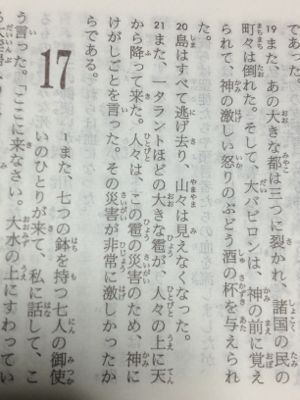 であった。
19また、あの大きな都は三つに裂かれ、諸国の民の
町々は倒れた。そして、大バビロンは、神の前に覚え
られて、神の激しい怒りのぶどう酒の杯を与えられ
た。
20島はすべて逃げ去り、山々は見えなくなった。
21また、一タラントほどの大きな雹が、人々の上に天
から降って来た。人々は、この雹の災害のため、神に
けがしごとを言った。その災害が非常に激しかったか
らである。
17
1また、七つの鉢を持つ七人の御使
いのひとりが来て、私に話して、こ
う言った。「ここに来なさい。大水の上にすわってい